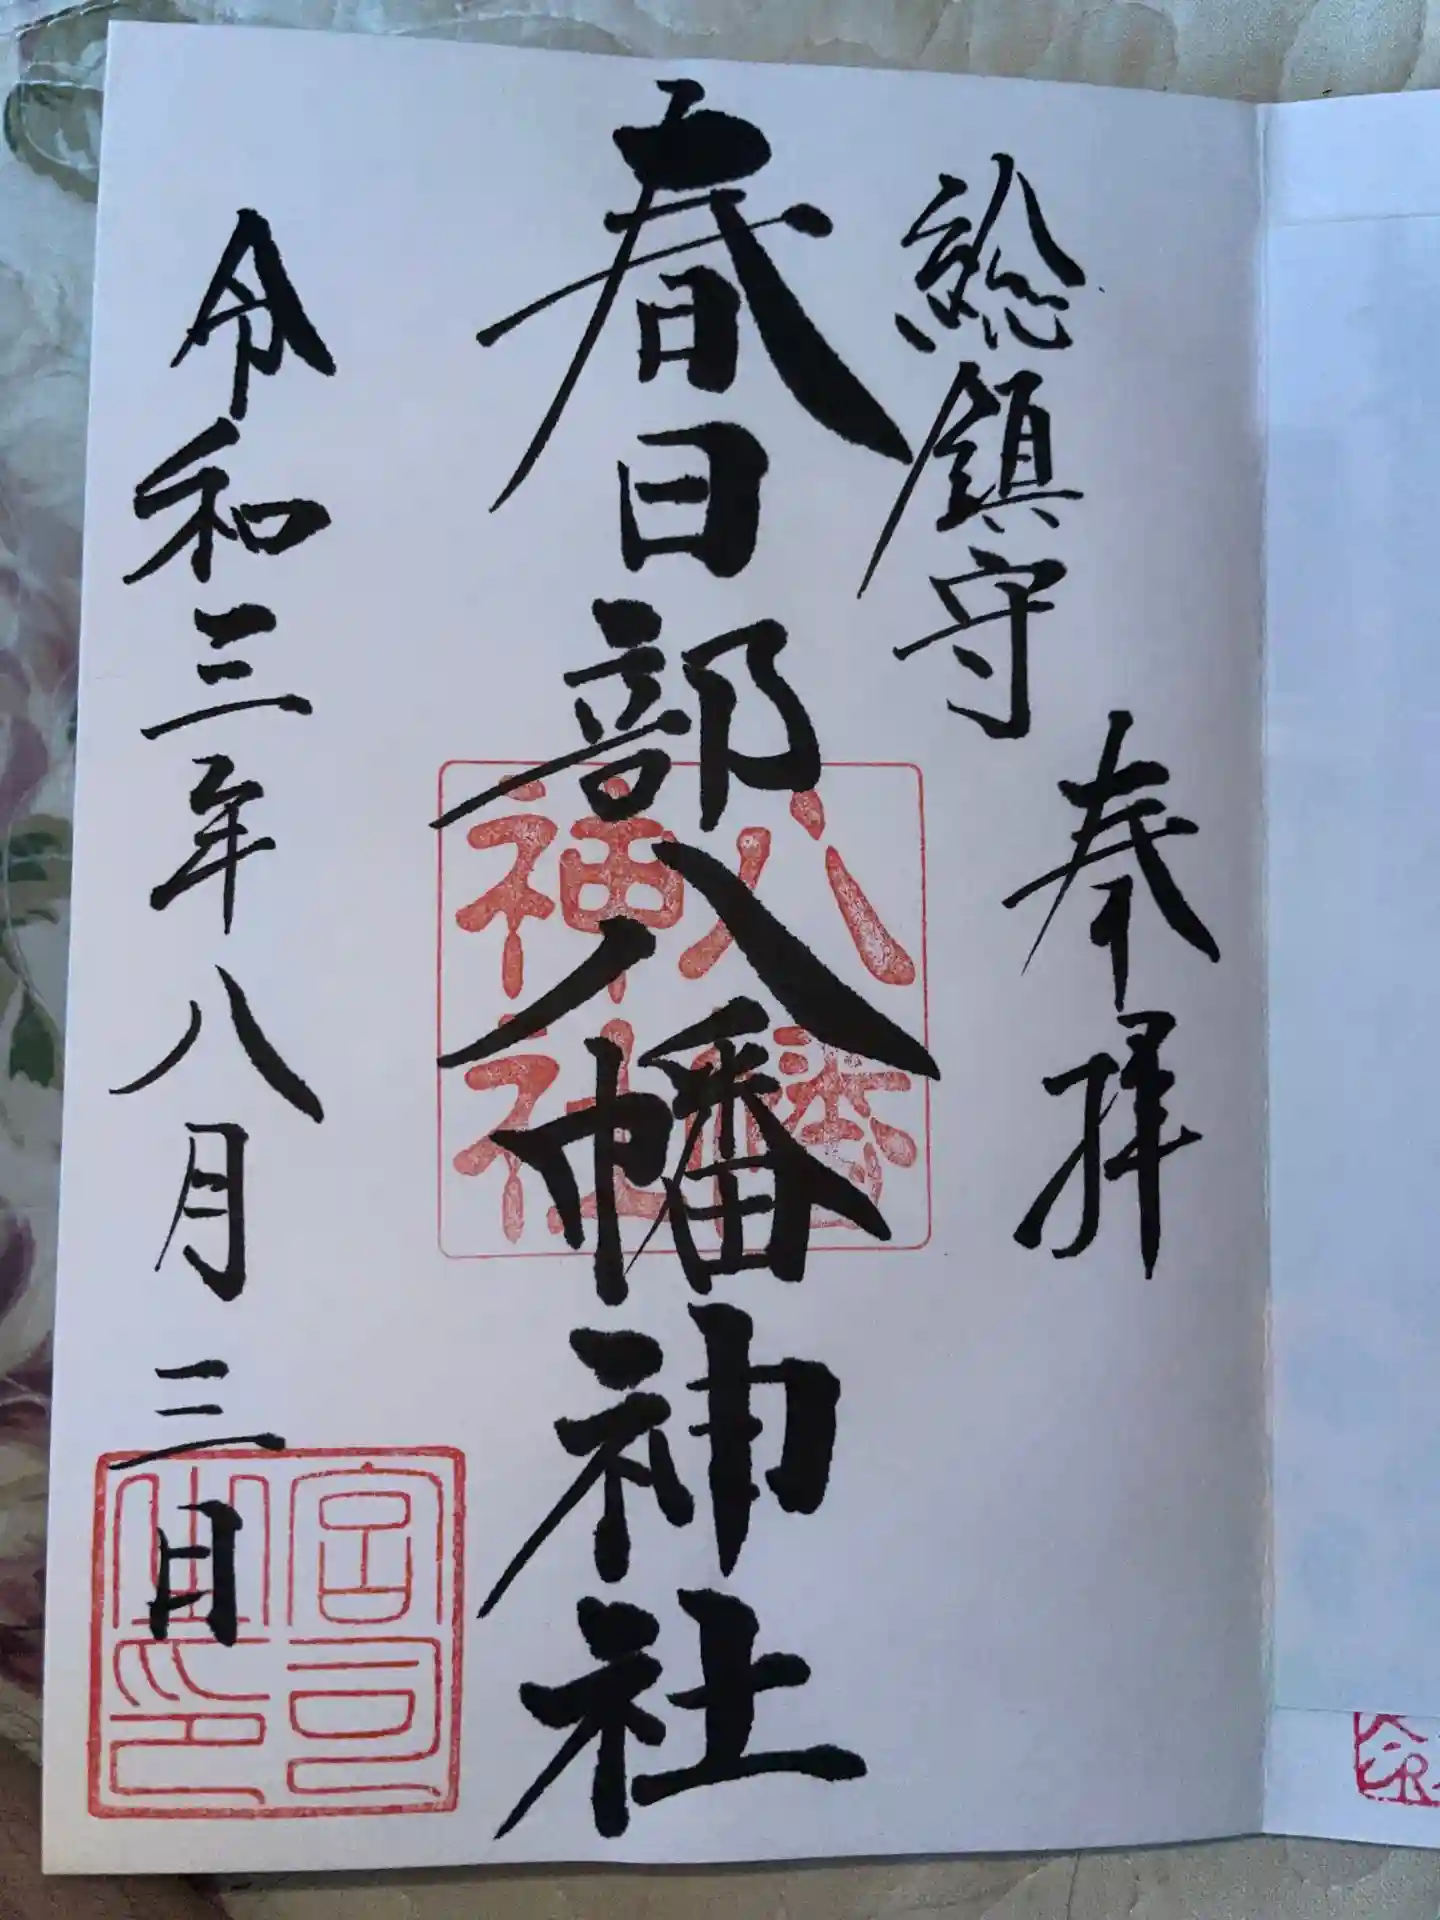 奉拝
総鎮守
春日部八幡神社
令和三年八月三日
八幡
神社
宮司
之印